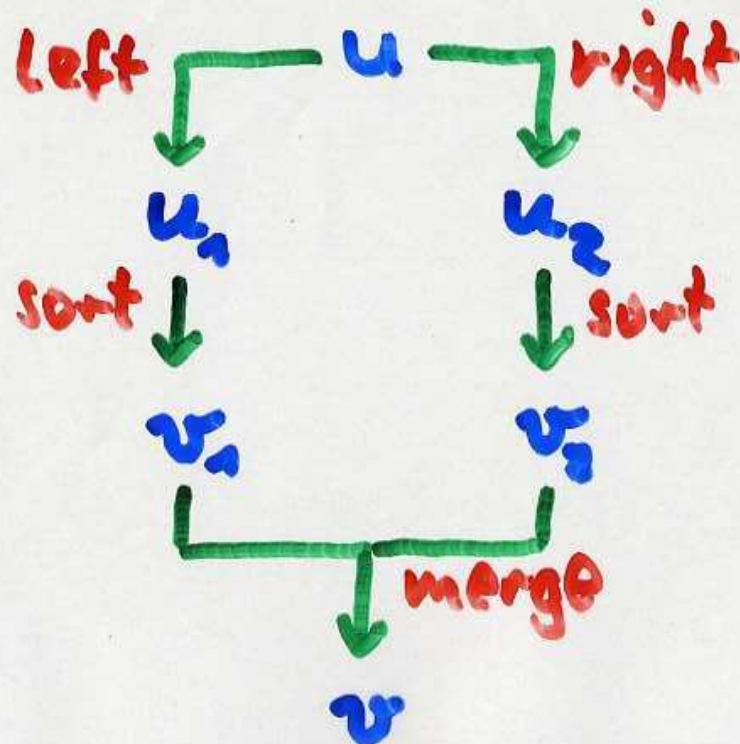 left u right
u₁ u₂
sort sort
v₁ v₂
merge
v